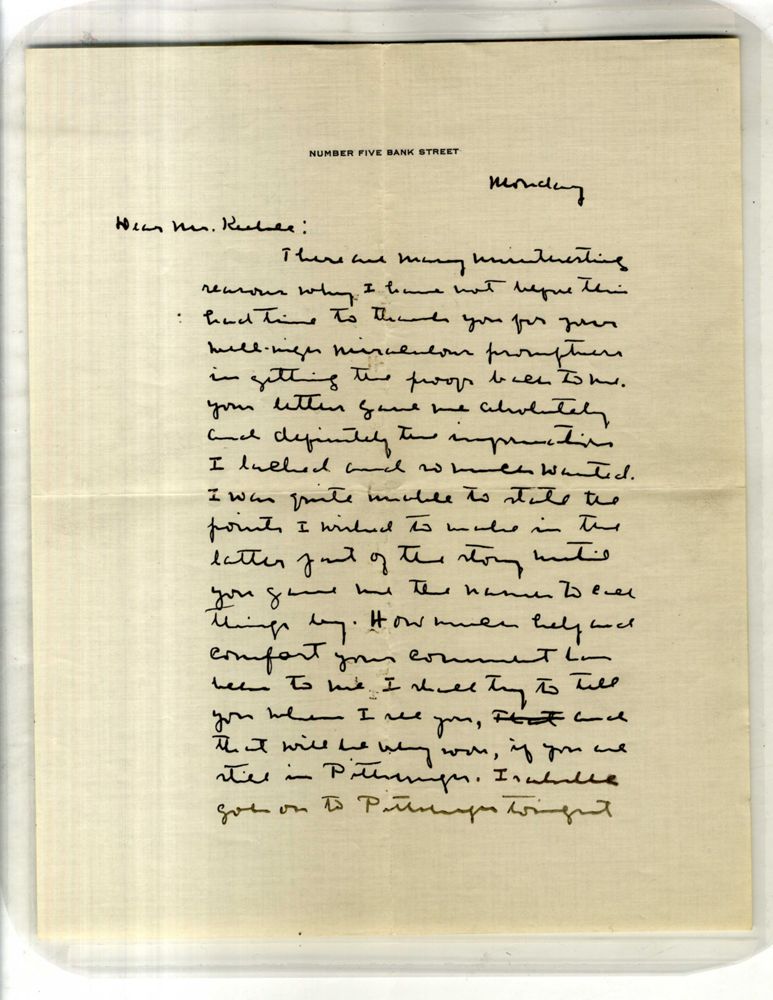 NUMBER FIVE BANK STREET
Monday
Dear Mr.
There are many uninteresting
reasons why I have not before this
had time to thank you for your
well-nigh miraculous promptness
in getting the proofs back to me.
Your letter gave me absolutely
and definitely the information
I lacked and so much wanted.
I was quite unable to state the
points I wished to make in the
latter part of the story until
you gave me the names to call
things by. How much help and
comfort your comment has
been to me I shall try to tell
you when I see you, That and
that will be very soon, if you are
still in Pittsburgh. Isabelle
goes on to Pittsburgh tonight